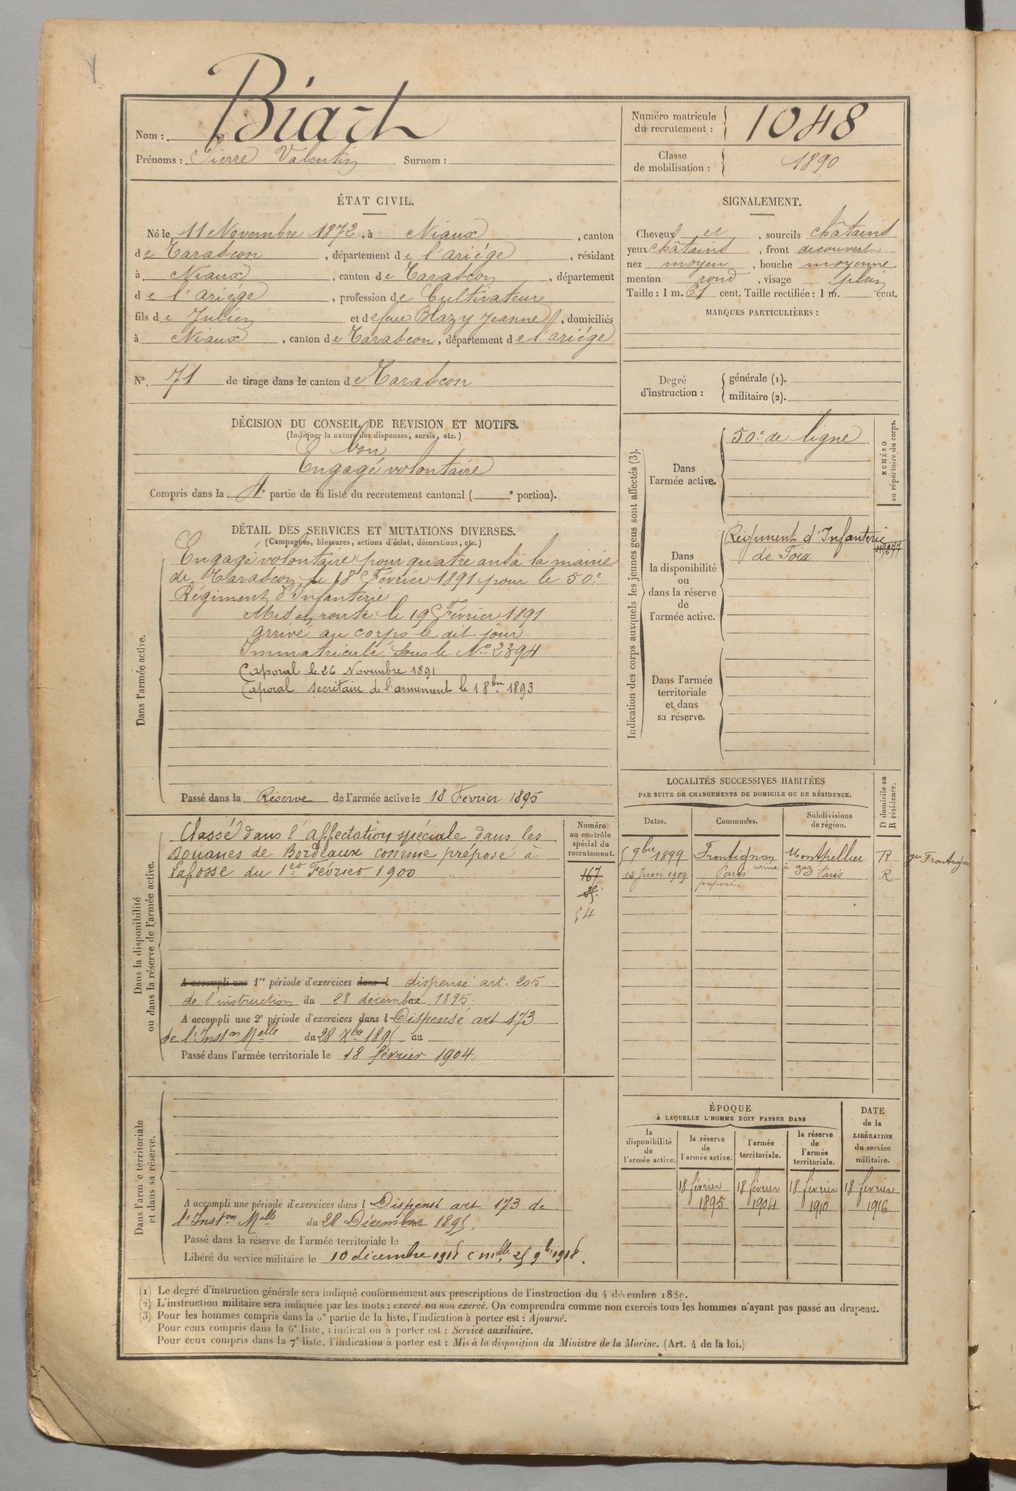 Nom : Biart
Prénoms : Pierre Valentin Surnom :
Numéro matricule du recrutement : 1048
Classe de mobilisation : 1890
ÉTAT CIVIL.
Né le 11 Novembre 1872, à Niaux, canton
de Tarascon, département de l'ariége, résidant
à Niaux, canton de Tarascon, département
de l'ariége, profession de Cultivateur
fils de Julien et de feue Blazy Jeanne, domiciliés
à Niaux, canton de Tarascon, département de l'ariége
N° 71 de tirage dans le canton de Tarascon
SIGNALEMENT.
Cheveux et, sourcils châtains
yeux châtains, front découvert
nez moyen, bouche moyenne
menton rond, visage plein
Taille : 1 m. 61 cent. Taille rectifiée : 1 m. cent.
MARQUES PARTICULIÈRES :
Degré d'instruction : générale (1).
militaire (2).
DÉCISION DU CONSEIL DE REVISION ET MOTIFS.
(Indiquer la nature des dispenses, sursis, etc.)
bon
Engagé volontaire
Compris dans la 4e partie de la liste du recrutement cantonal ( e portion).
DÉTAIL DES SERVICES ET MUTATIONS DIVERSES.
(Campagnes, blessures, actions d'éclat, décorations, etc.)
Dans l'armée active.
Engagé volontaire pour quatre ans à la mairie
de Tarascon le 18 Février 1891 pour le 50e
Régiment d'Infanterie
Mis en route le 19 Février 1891
arrivé au corps le dit jour
Immatriculé sous le No 2394
Caporal le 26 Novembre 1891
Caporal secrétaire de l'armement le 1 8bre 1893
Passé dans la Réserve de l'armée active le 18 Février 1895
Indication des corps auxquels les jeunes gens sont affectés (3).
NUMÉRO au répertoire du corps.
Dans l'armée active.
50e de ligne
Dans la disponibilité ou dans la réserve de l'armée active.
Régiment d'Infanterie
de Foix
Dans l'armée territoriale et dans sa réserve.
Dans la disponibilité ou dans la réserve de l'armée active.
Classé dans l'affectation spéciale dans les
Douanes de Bordeaux comme préposé à
Lafosse du 1er Février 1900
Numéro au contrôle spécial du recrutement.
167
54
A accompli une 1re période d'exercices dans l dispensé art. 205
de l'instruction du 28 décembre 1895
A accompli une 2e période d'exercices dans l Dispensé art 173
de l'Inston Melle du 28 Xbre 1895 au
Passé dans l'armée territoriale le 18 février 1904
LOCALITÉS SUCCESSIVES HABITÉES
PAR SUITE DE CHANGEMENTS DE DOMICILE OU DE RÉSIDENCE.
D domicile ou R résidence.
Dates. Communes. Subdivisions de région.
5 9bre 1899 Frontignan Montpellier R
13 Juin 1909 Paris Paris R
Dans l'armée territoriale et dans sa réserve.
A accompli une période d'exercices dans l Dispensé art 173 de
l'Inston Melle du 28 Décembre 1895.
Passé dans la réserve de l'armée territoriale le
Libéré du service militaire le 10 décembre 1918
ÉPOQUE
À LAQUELLE L'HOMME DOIT PASSER DANS
la disponibilité de l'armée active.
la réserve de l'armée active.
l'armée territoriale.
la réserve de l'armée territoriale.
DATE de la LIBÉRATION du service militaire.
18 février 1895
18 février 1904
18 février 1910
18 février 1916
(1) Le degré d'instruction générale sera indiqué conformément aux prescriptions de l'instruction du 4 décembre 1889.
(2) L'instruction militaire sera indiquée par les mots : exercé ou non exercé. On comprendra comme non exercés tous les hommes n'ayant pas passé au drapeau.
(3) Pour les hommes compris dans la 5e partie de la liste, l'indication à porter est : Ajourné.
Pour ceux compris dans la 6e liste, l'indication à porter est : Service auxiliaire.
Pour ceux compris dans la 7e liste, l'indication à porter est : Mis à la disposition du Ministre de la Marine. (Art. 4 de la loi.)